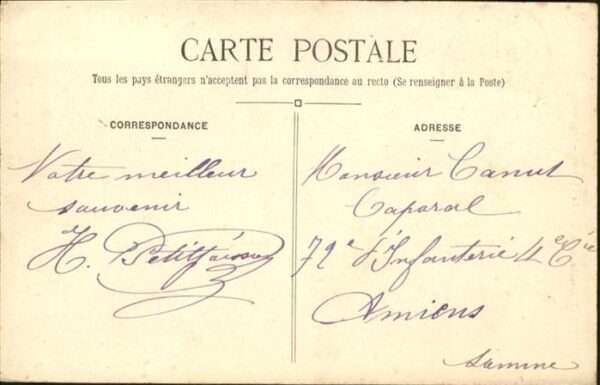 CARTE POSTALE
Tous les pays étrangers n'acceptent pas la correspondance au recto (Se renseigner à la Poste)
CORRESPONDANCE
Votre meilleur
souvenir
H.
ADRESSE
Monsieur Canut
Caporal
72e d'Infanterie 4e Cie
Amiens
Somme